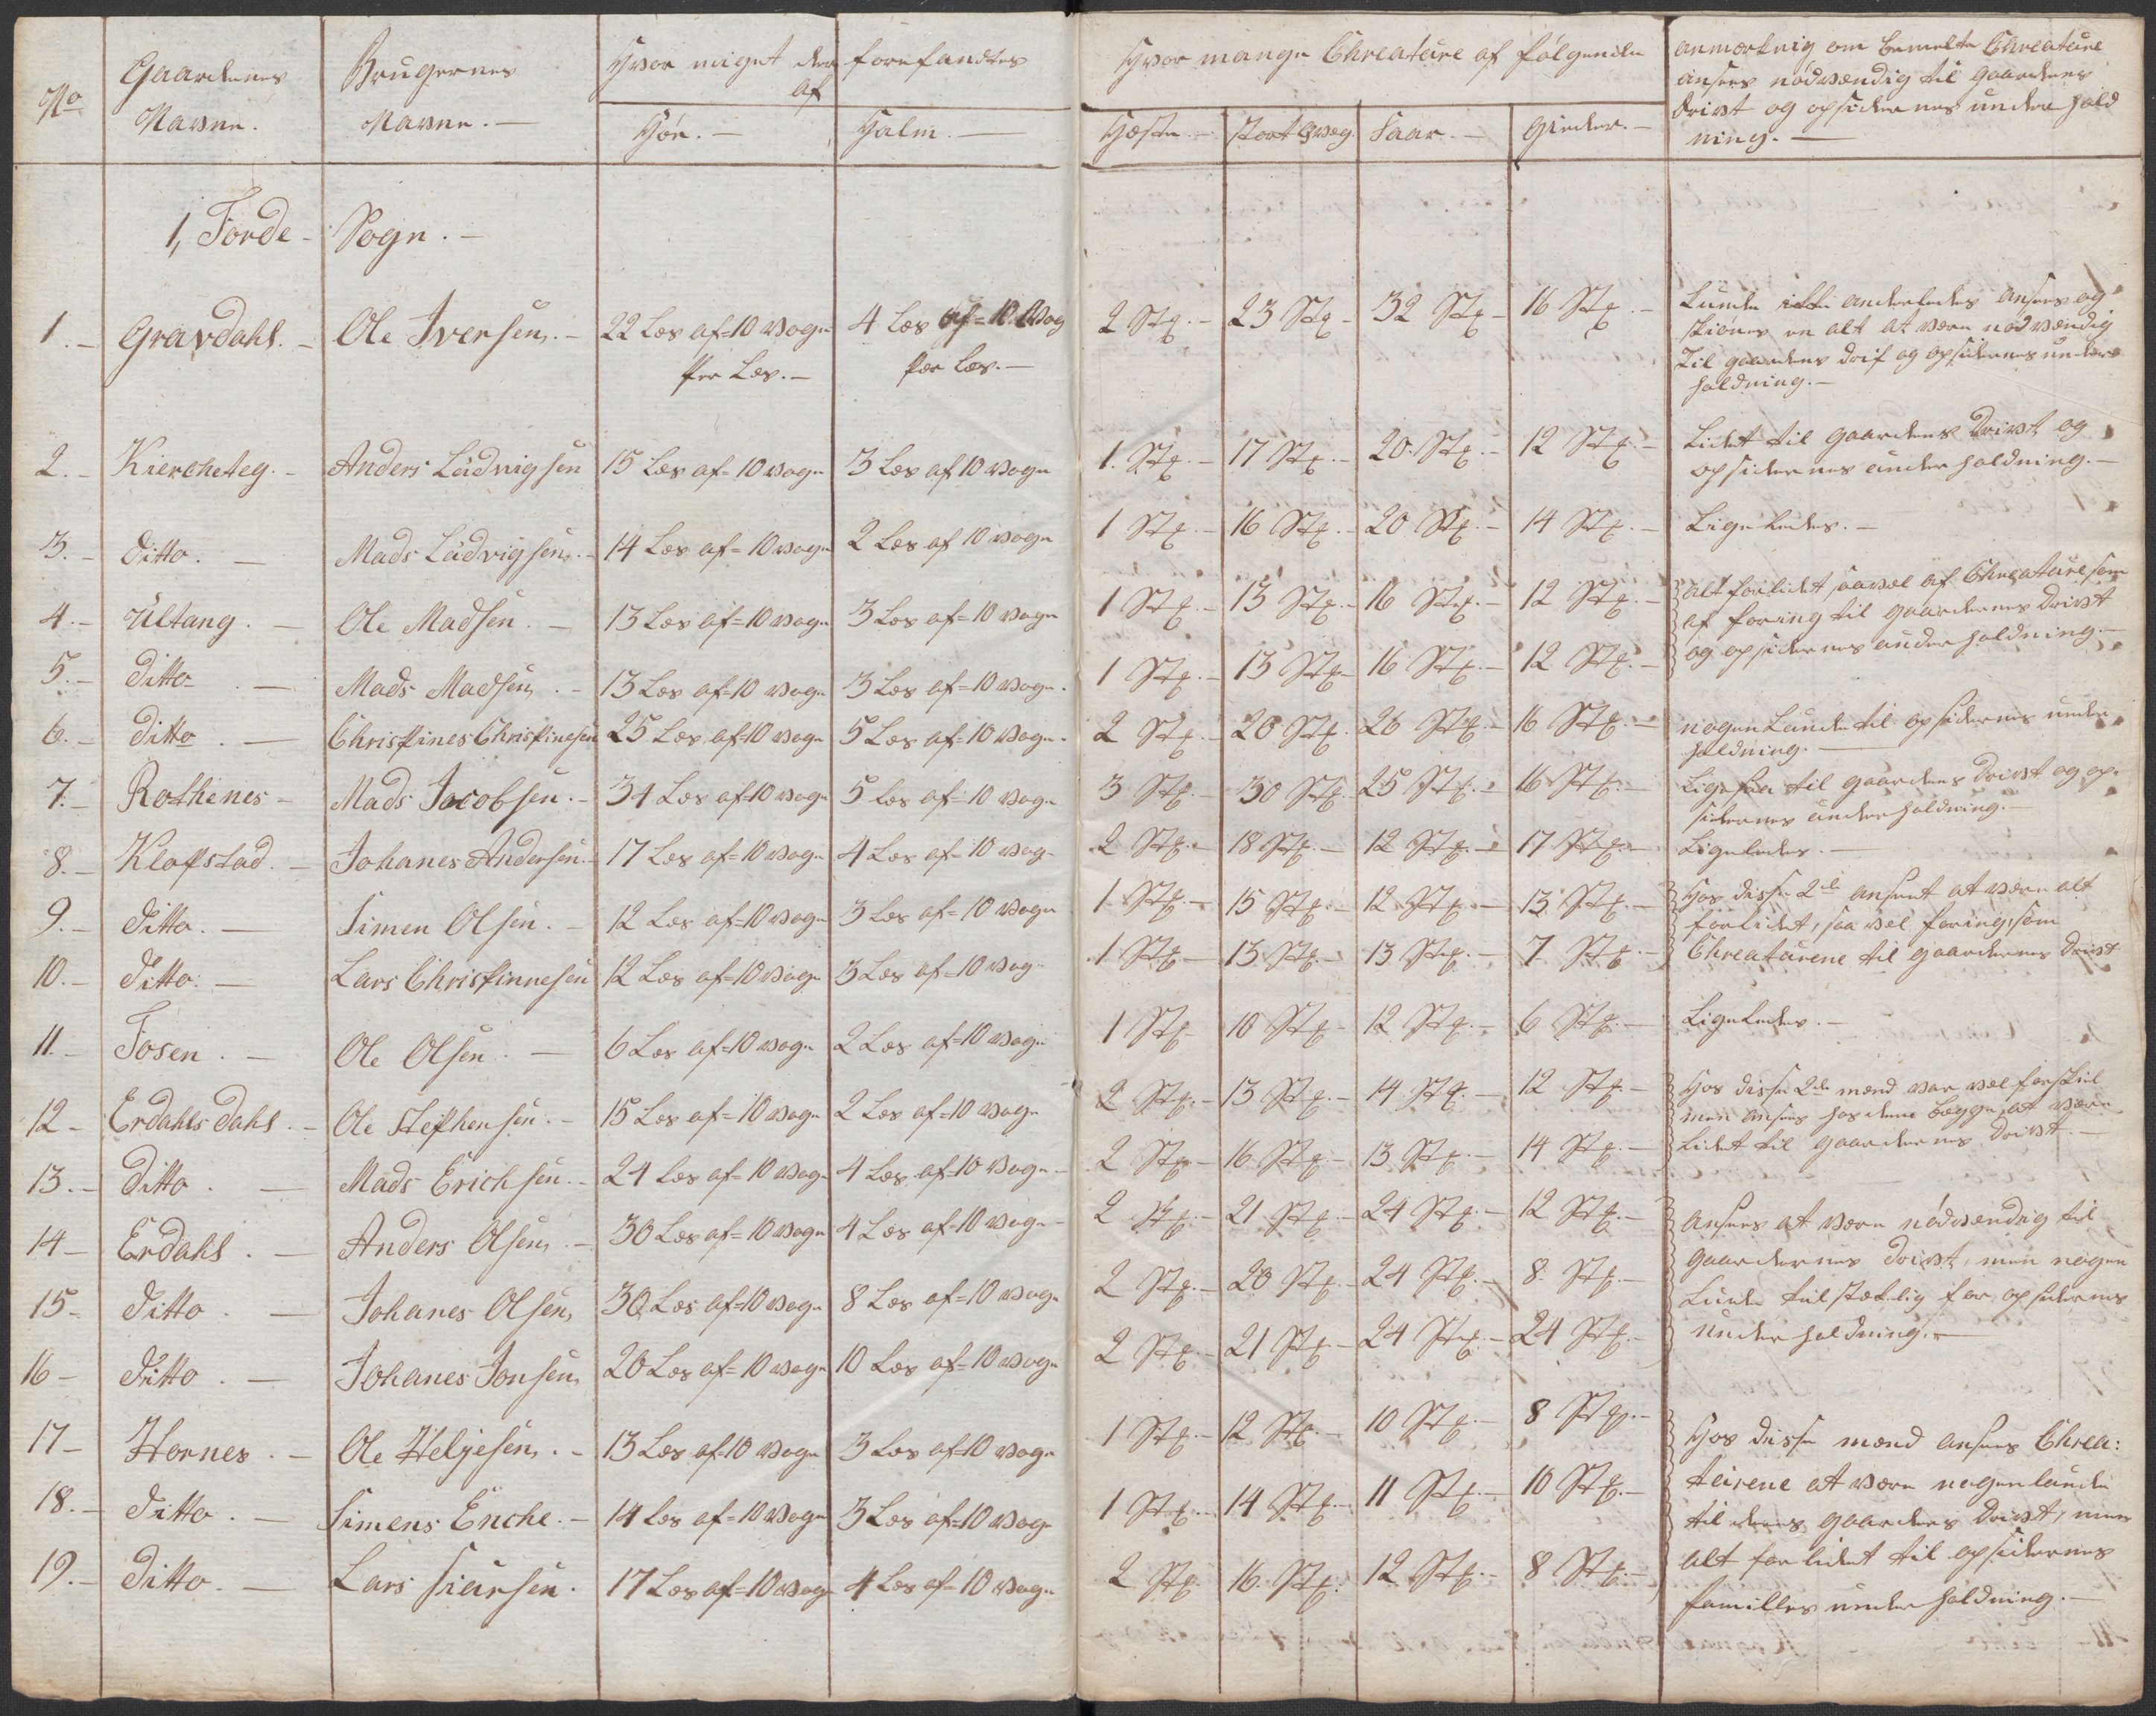 No
Gaardenes Navne.
Brugernes Navne.
Hvor meget der forefandtes af
Høe.
Halm.
Hvor mange Chreature af følgende
Hæste.
stort qvæg
Faar.
gieder.
anmærkning om bemelte Chreature
ansees nødvændig til gaardens
drivt og opsidernes underhold
ning.
1, Førde Sogn.
1. Gravdahl. Ole Iversen. 22 Læs af=10 Vogn per Læs. 4 Læs af=10 Vog per Læs. 2 Stk. 23 Stk. 32 Stk. 16 Stk.
Kunde ikke anderledes ansees og
skiønes en alt at være nødvændig
til gaardens drif og opsidernes under
holdning.
2. Kiercheteg. Anders Ludvigsen 15 Læs af=10 vogn 3 Læs af 10 vogn 1. Stk. 17 Stk. 20. Stk. 12 Stk.
Lidet til gaardens Drivt og
opsidernes underholdning.
3. ditto. Mads Ludvigsen. 14 Læs af=10 vogn 2 Læs af 10 vogn 1 Stk. 16 Stk. 20 Stk. 14 Stk. Ligeledes.
4. Ultang. Ole Madsen. 13 Læs af=10 vogn 3 Læs af=10 vogn 1 Stk. 13 Stk. 16 Stk. 12 Stk.
alt forlidet saavel af Chreature som
af foring til gaardernes drivt
og opsidernes underholdning.
5. ditto. Mads Madsen. 13 Læs af=10 vogn 3 Læs af=10 vogn. 1 Stk. 13 Stk. 16 Stk. 12 Stk.
6. ditto. Christines Christinesen 25 Læs af=10 vogn 5 Læs af=10 vogn. 2 Stk. 20 Stk. 26 Stk. 16 Stk.
nogenlunde til opsidernes under
holdning.
7. Rothenes Mads Jacobsen. 34 Læs af=10 vogn 5 Læs af=10 vogn 3 Stk. 30 Stk. 25 Stk. 16 Stk.
Ligesaa til gaardens drivt og op-
sidernes underholdning.
8. Klafstad. Johanes Andersen. 17 Læs af=10 vogn 4 Læs af=10 vog 2 Stk. 18 Stk. 12 Stk. 17 Stk. Ligeledes.
9. ditto. Simen Olsen. 12 Læs af=10 vogn 3 Læs af=10 vogn 1 Stk. 15 Stk. 12 Stk. 13 Stk.
Hos disse 2de anseet at være alt
forlidet, saa vel foring som
Chreaturene til gaardernes drivt
10. ditto. Lars Christinnesen 12 Læs af=10 vogn 3 Læs af=10 vog 1 Stk. 13 Stk. 13 Stk. 7 Stk.
11. Fosen. Ole Olsen. 6 Læs af=10 vogn 2 Læs af=10 vogn 1 Stk. 10 Stk. 12 Stk. 6 Stk. Ligeledes.
12 Erdahls dahl. Ole Stephensen. 15 Læs af=10 vogn 2 Læs af=10 vogn 2 Stk. 13 Stk. 14 Stk. 12 Stk.
Hos disse 2de mænd var vel forskiel
men ansees hos dem begge at være
lidet til gaardernes drivt.
13. ditto. Mads Erichsen. 24 Læs af=10 vogn 4 Læs af=10 vogn 2 Stk. 16 Stk. 13 Stk. 14 Stk.
14 Erdahl. Anders Olsen. 30 Læs af=10 vogn 4 Læs af=10 vogn 2 Stk. 21 Stk. 24 Stk. 12 Stk.
ansees at være nødvændig til
gaardernes drivt, men nogen
lunde tilstækelig for opsidernes
underholdning.
15. ditto. Johanes Olsen, 30 Læs af=10 vogn 8 Læs af=10 vogn 2 Stk. 20 Stk. 24 Stk. 8 Stk.
16 ditto. Johanes Jonsen, 20 Læs af=10 vogn 10 Læs af=10 vogn 2 Stk. 21 Stk. 24 Stk. 24 Stk.
17 Hornes. Ole Heljesen. 13 Læs af=10 vogn 3 Læs af=10 vogn 1 Stk. 12 Stk. 10 Stk. 8 Stk.
Hos disse mænd ansees Chrea:
turene at være nogenlunde
til deres gaarders drivt, men
alt forlidet til opsidernes
famillies underholdning.
18. ditto. Simens Enche. 14 Læs af=10 vogn 3 Læs af=10 vogn 1 Stk. 14 Stk. 11 Stk. 10 Stk.
19. ditto. Lars Siursen. 17 Læs af=10 vogn 4 Læs af=10 vogn 2 Stk. 16. Stk. 12 Stk. 8 Stk.